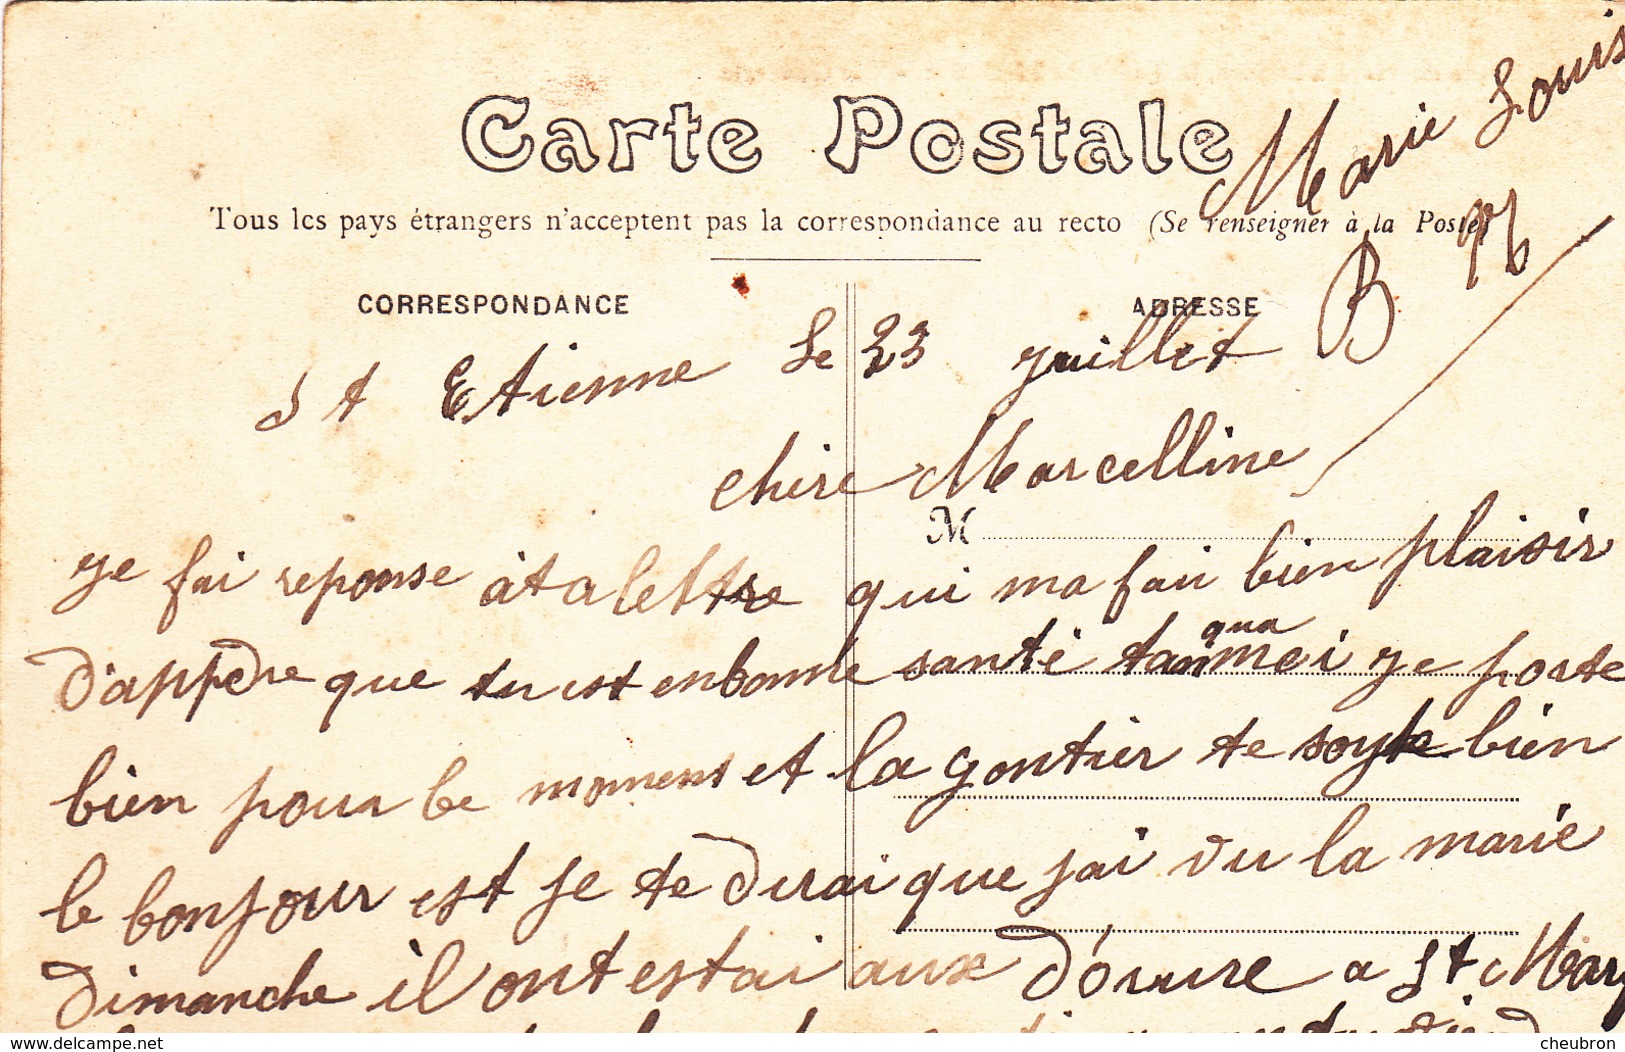 Carte Postale
Tous les pays étrangers n'acceptent pas la correspondance au recto (Se renseigner à la Poste)
CORRESPONDANCE
ADRESSE
Marie Louis
B
St Etienne Le 23 juillet
chere Marcelline
M
je fai reponse àta lettre qui ma fai bien plaisir
d'appere que tu est enbonne santé tan qua moi je porte
bien pour le moment et la gontier te soyte bien
le bonjour est je te dirai que jai vu la marie
dimanche il ont estai aux d'ouvre a St Mar
delcampe.net
cheubron